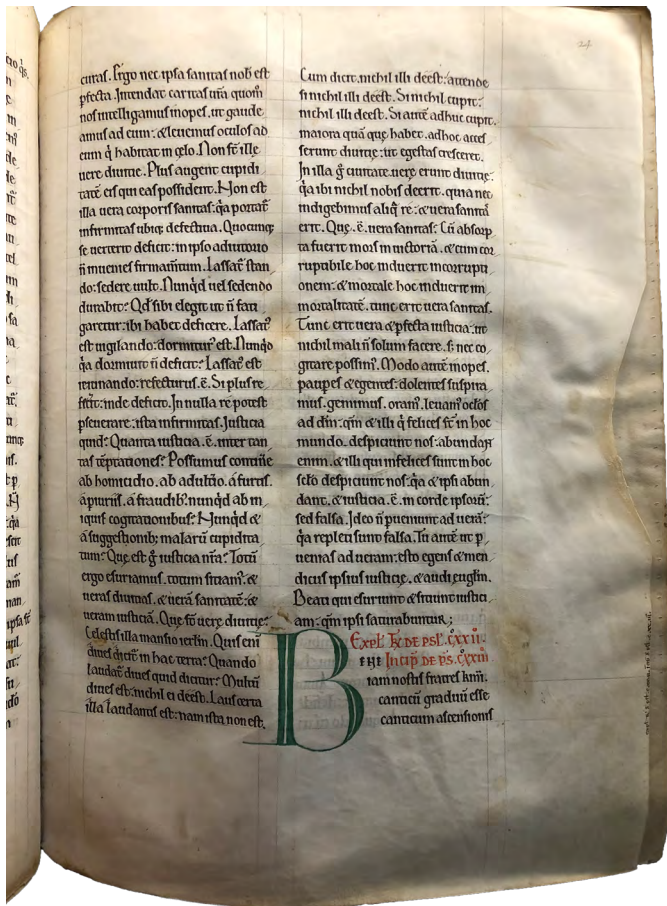 24
curas. Ergo nec ipsa sanitas nob̄ est
p̄fecta. Intendat caritas ur̄a quom̄
nos intelligamus inopes. ut gaude
amus ad eum: & leuemus oculos ad
eum q̇ habitat in cęlo. Non s̄t ille
uere diuitię. Plus augent cupidi
tatē eis qui eas possident. Non est
illa uera corporis sanitas: q̇a portat̄
infirmitas ubiq; defectiua. Quocūq;
se uerterit deficit: in ipso adiutorio
n̄ inuenies firmam̄tum. Lassat̄ stan
do: sedere uult. Nunq̇d uel sedendo
durabit? Qd̄ sibi elegit ut n̄ fati
garetur: ibi habet deficere. Lassat᷒
est uigilando: dormitur᷒ est. Nunq̇d
q̇a dormiuit n̄ deficit? Lassat᷒ est
ieiunando: refecturus .ē. Si plus re
fic̄it: inde deficit. In nulla re potest
p̄seuerare: ista infirmitas. Justicia
quid? Quanta iusticia .ē. inter tan
tas tēptationes? Possumus contine
ab homicidio. ab adult̄io. a furtis.
a ꝑiuriis. a fraudib᷒. nunq̇d ab in
iquis cogitationibus? Nunq̇d &
a suggestionib; malarū cupidita
tum? Que est ḡ iusticia nr̄a? Totū
ergo esuriamus. totum sitiam᷒. &
ueras diuitias. & uerā sanitatē: &
ueram iusticiā. Que s̄t uere diuitię?
Celestis illa mansio ierl̄m. Quis eni
diues dicit̄ in hac terra? Quando
laudat̄ diues quid dicitur? Multū
diues est: nichil ei deest. Laus certa
illa laudantis est: nam ista non est.
Cum dicit. nichil illi deest: attende
si nichil illi deest. Si nichil cupit:
nichil illi deest. Si autē adhuc cupit.
maiora quā quę habet. adhoc acces
serunt diuitię: ut egestas cresceret.
In illa ḡ ciuitate. uere erunt diuitię:
q̇a ibi nichil nobis deerit. quia nec
indigebimus aliq̄ re: & uera sanitas
erit. Que .ē. uera sanitas? Cū absorp
ta fuerit mors in uictoriā. & cum cor
ruptibile hoc induerit incorrupti
onem: & mortale hoc induerit im
mortalitatē. tunc erit uera sanitas.
Tunc erit uera & p̄fecta iusticia: ut
nichil mali n̄ solum facere. s; nec co
gitare possim᷒. Modo autē inopes.
paupes & egentes: dolentes suspira
mus. gemimus. oram᷒. leuam᷒ oc̄los
ad dn̄m: qm̄ & illi q̇ felices s̄t in hoc
mundo. despiciunt nos: abundant
enim. & illi qui infelices sunt in hoc
sc̄lo despiciunt nos: q̇a & ipsi abun
dant. & iusticia .ē. in corde ipsorū:
sed falsa. Ideo n̄ ꝑueniunt ad uerā:
q̇a repleti sunt falsa. Tu autē ut ꝑ
uenias ad ueram: esto egens & men
dicus ipsius iusticię. & audi eugl̄m.
Beati qui esuriunt & sitiunt iustici
am: qm̄ ipsi saturabuntur;
Expl̄. DE PSL̄. CXXII.
Incip̄ DE PS. CXXIII
B
iam nostis fratres km̄i.
canticū graduū esse
canticum ascensionis